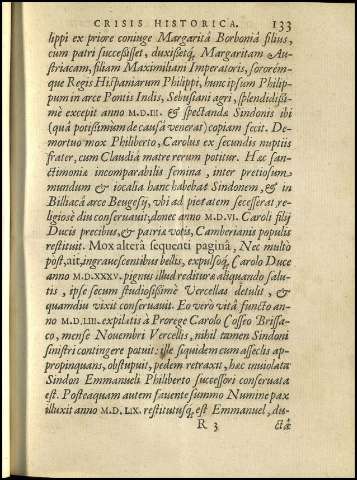 CRISIS HISTORICA. 133
lippi ex priore coniuge Margaritâ Borboniâ filius,
cum patri successisset, duxissetq́; Margaritam Au-
striacam, filiam Maximiliani Imperatoris, sororém-
que Regis Hispaniarum Philippi, hunc ipsum Philip-
pum in arce Pontis Indis, Sebusiani agri, splendidissi-
mè excepit anno M.D.III. & spectandæ Sindonis ibi
(quâ potissimum de causâ venerat) copiam fecit. De-
mortuo mox Philiberto, Carolus ex secundis nuptiis
frater, cum Claudiâ matre rerum potitur. Hæc san-
ctimoniâ incomparabilis femina, inter pretiosum
mundum & iocalia hanc habebat Sindonem, & in
Billiacâ arce Beugesij, vbi ad pietatem secesserat re-
ligiosè diu conseruauit; donec anno M.D.VI. Caroli filij
Ducis precibus, & patriæ votis, Camberianis populis
restituit. Mox alterâ sequenti paginâ, Nec multò
post, ait, ingrauescentibus bellis, expulsoq; Carolo Duce
anno M.D.XXXV. pignus illud redituræ aliquando salu-
tis, ipse secum studiosissimè Vercellas detulit, &
quamdiu vixit conseruauit. Eo verò vitâ functo an-
no M.D.LIII. expilatis à Prorege Carolo Cosseo Brissa-
co, mense Nouembri Vercellis, nihil tamen Sindoni
sinistri contingere potuit: ille siquidem cum asseclis ap-
propinquans, obstupuit, pedem retraxit, hæc inuiolata
Sindon Emmanueli Philiberto successori conseruata
est. Posteaquam autem fauente summo Numine pax
illuxit anno M.D.LIX. restitutusq́; est Emmanuel, du-
R 3 ctâ